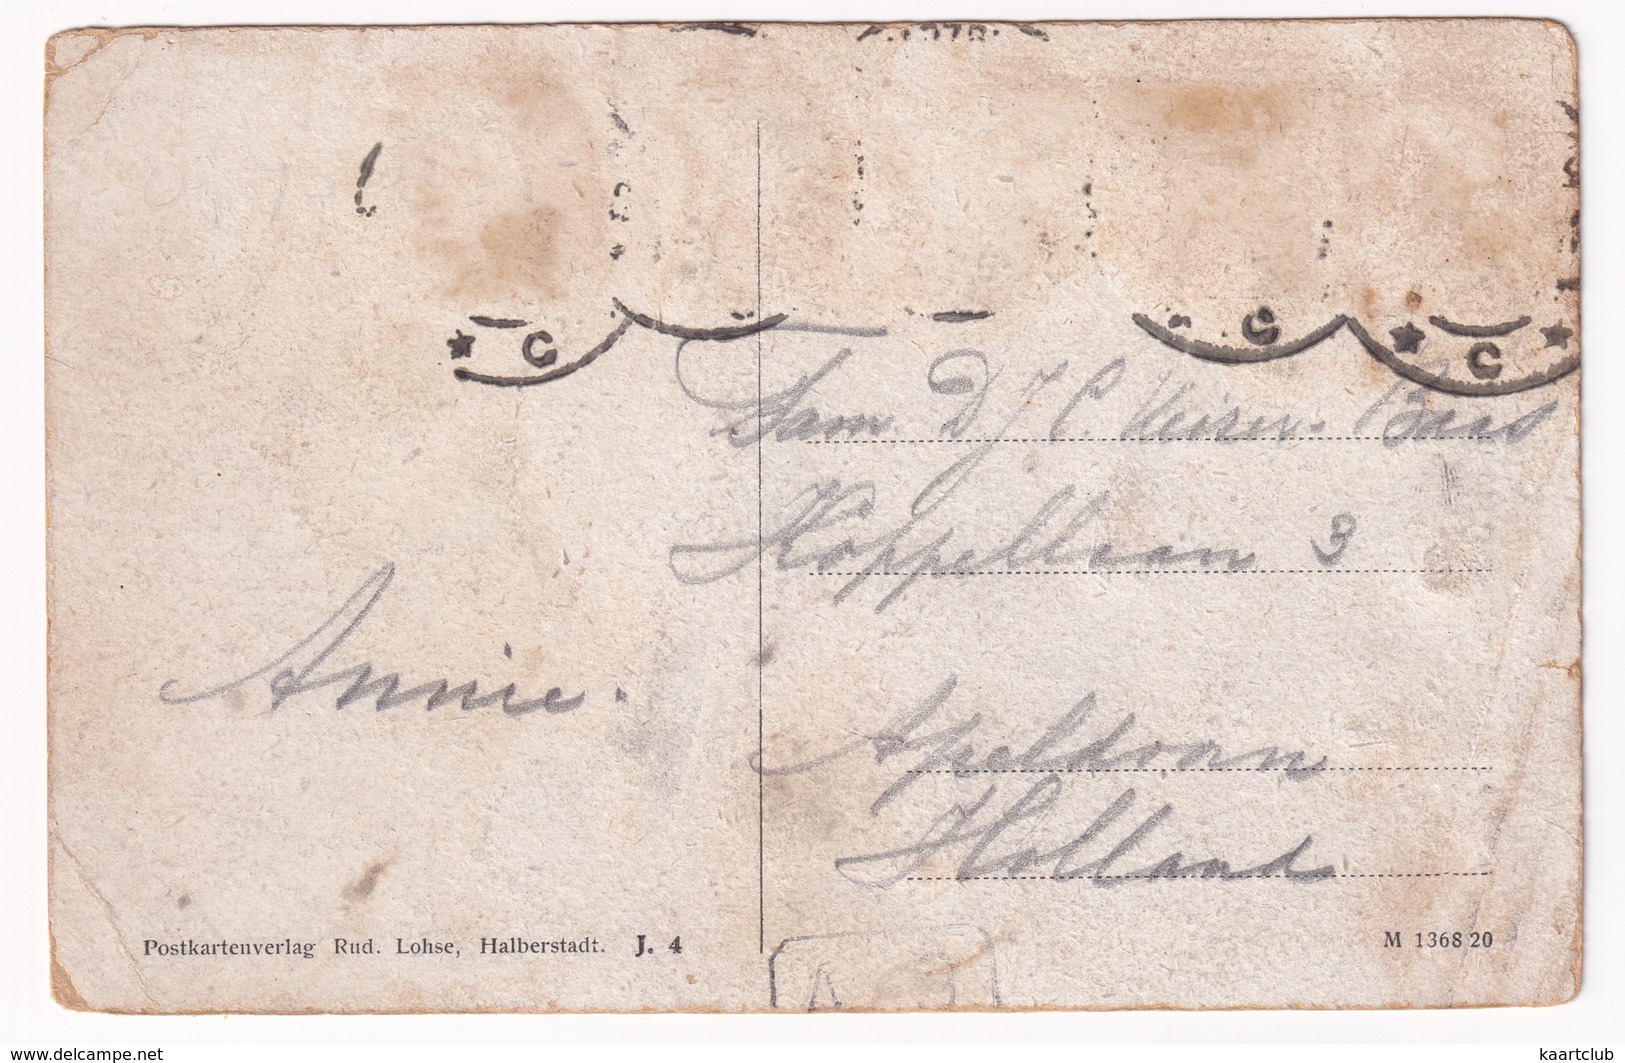 Fam. D J C. Bus
Koppellaan 3
Annie.
Apeldoorn
Holland
Postkartenverlag Rud. Lohse, Halberstadt. J. 4
M 1368 20
C
C
C
www.delcampe.net
kaartclub